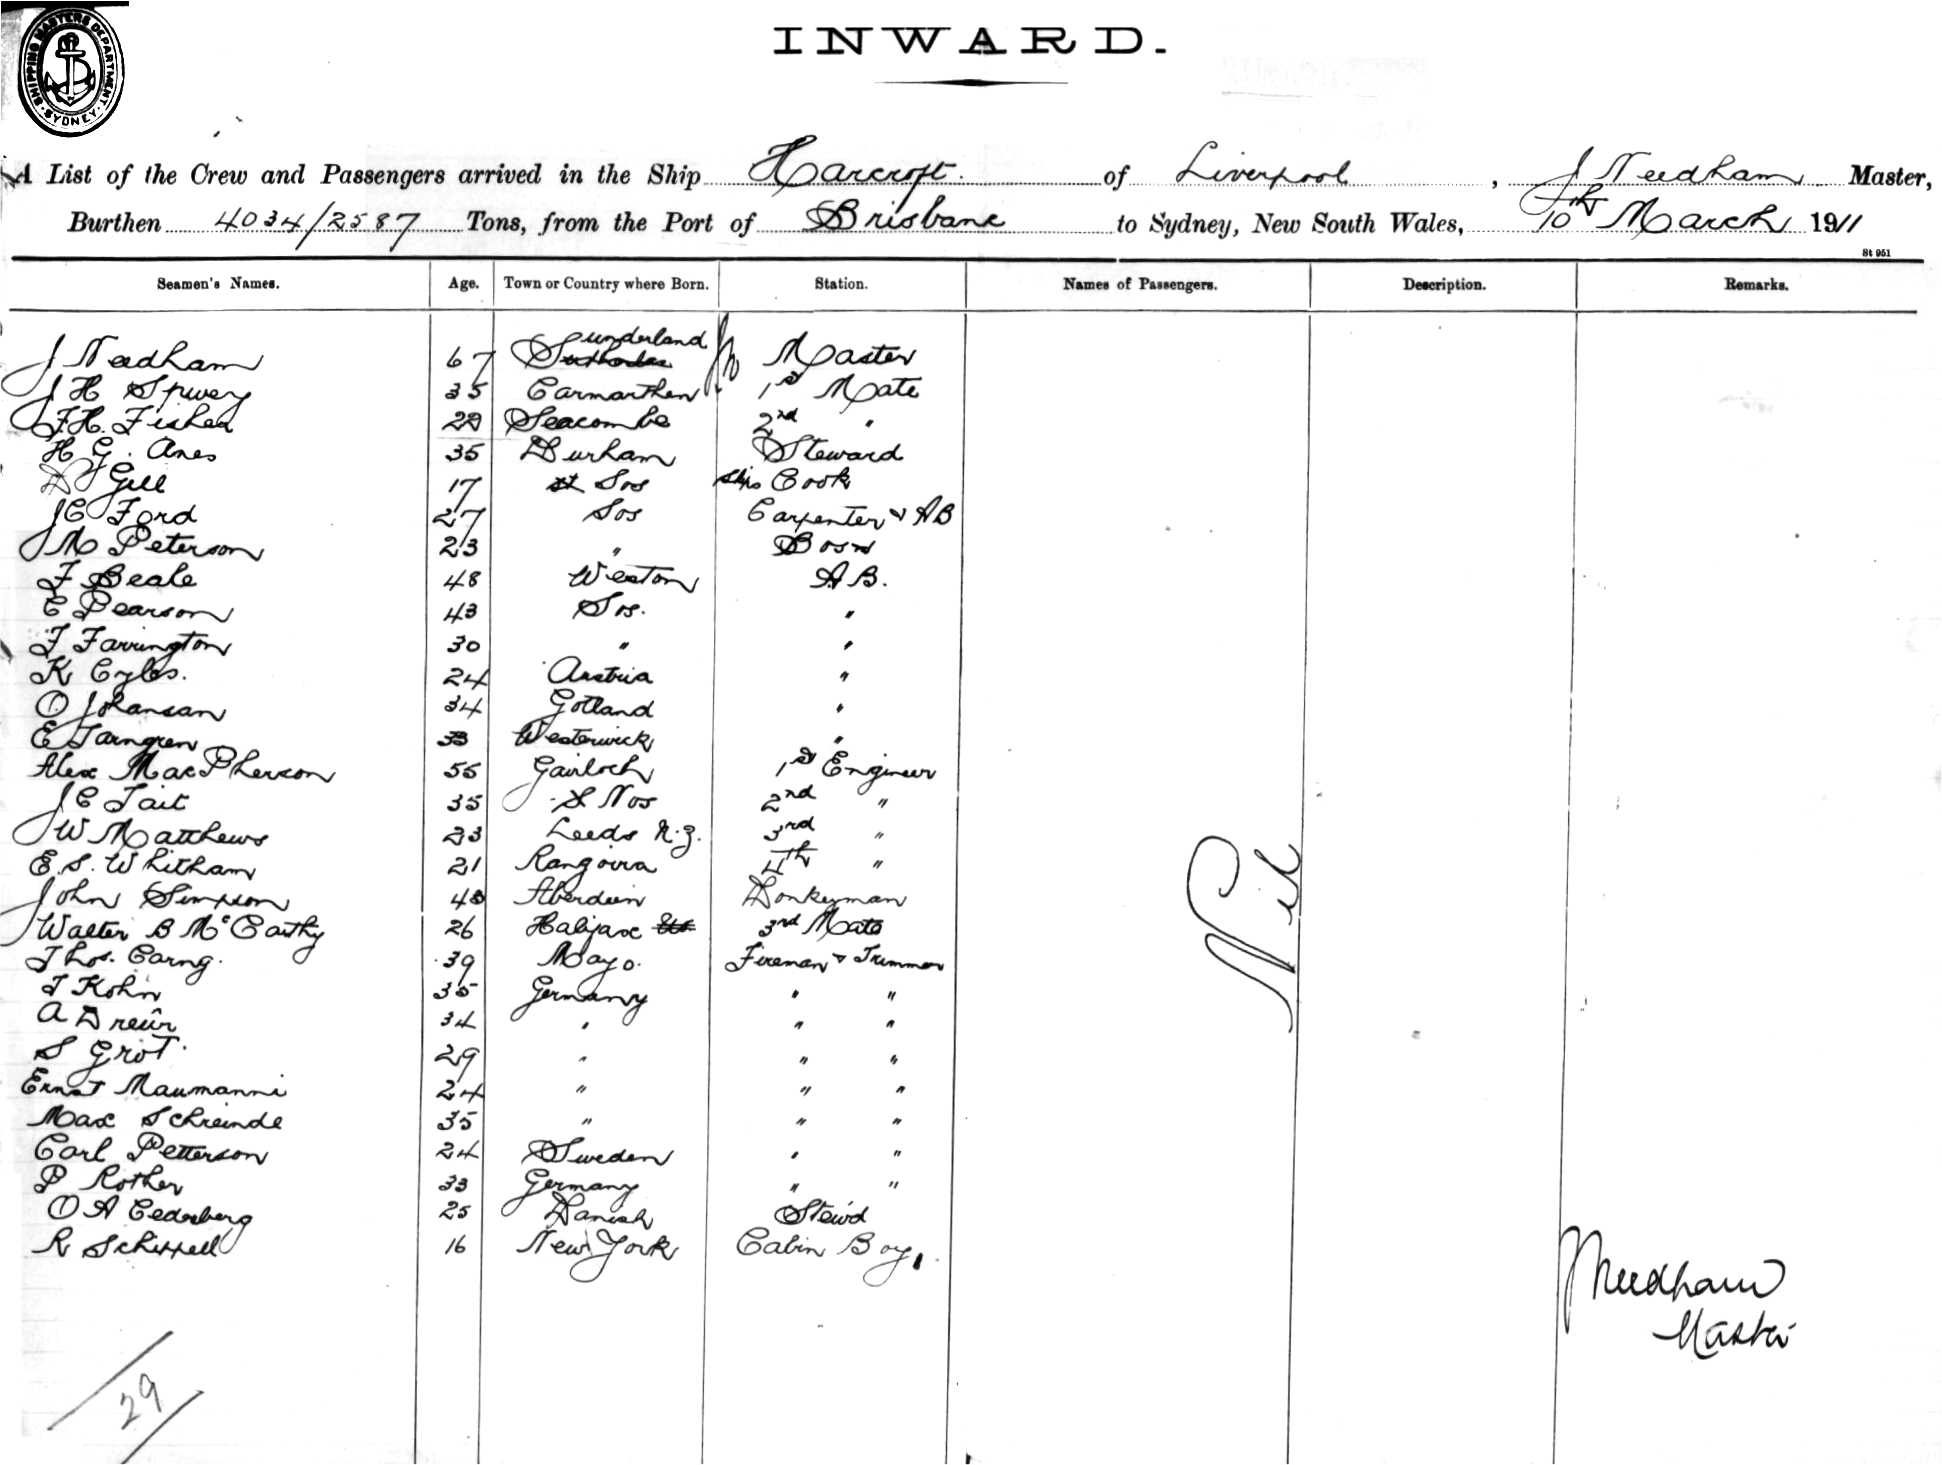 SHIPPING MASTERS DEPARTMENT
SYDNEY
INWARD.
A List of the Crew and Passengers arrived in the Ship Harcroft. of Liverpool, J Needham Master,
Burthen 4034/2587 Tons, from the Port of Brisbane to Sydney, New South Wales, 10th March 1911
St 951
Seamen's Names. Age. Town or Country where Born. Station. Names of Passengers. Description. Remarks.
J Needham 67 Sunderland Master
J H Spivey 35 Carmarthen 1st Mate
F H. Fisher Seacombe 2nd "
H G. Anes 35 Durham Steward
Gill 17 Sos Ships Cook
J C Ford 27 Sos Carpenter & AB
J M Peterson 23 " Bosn
F Beale 48 Weston A B.
C Pearson 43 Sos. "
F Farrington 30 " "
K Cyles. 24 Austria "
O Johansan 34 Gotland "
E Tarngren 33 Westerwick "
Alex MacPherson 55 Gairloch 1st Engineer
J C Tait 35 S Nos 2nd "
J W Matthews 23 Leeds N.Z. 3rd "
E. S. Whitham 21 Rangoira 4th "
John Simpson Aberdeen Donkeyman
Walter B McCarthy 26 Halifax 3rd Mate
Thos. Carng. 39 Mayo. Fireman & Trimmer
J Kohn 35 Germany " "
A Dreür 34 " " "
S Grot. 29 " " "
Ernst Maumanni 24 " " "
Max Schreinde 35 " " "
Carl Petterson 24 Sweden " "
P Rother 33 Germany " "
O A Cederberg 25 Danish Stewd
R Schippell 16 New York Cabin Boy.
Nil
J Needham
Master
29